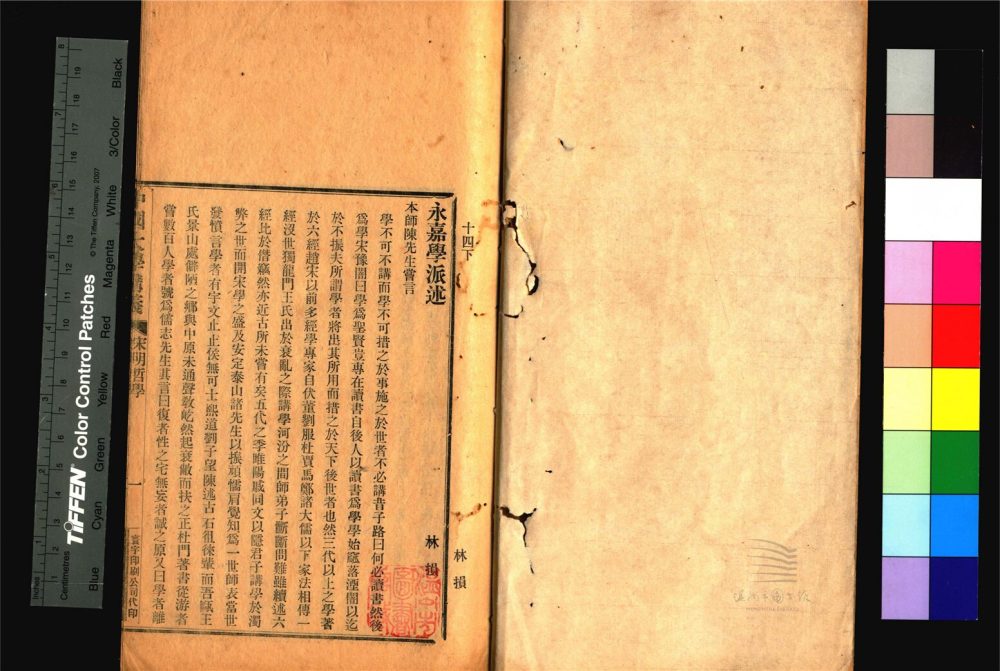 十四下
林損
永嘉學派述
林損
本師陳先生嘗言
學不可不講而學不可措之於事施之於世者不必講昔子路曰何必讀書然後
爲學宋豫闇曰學爲聖賢豈專在讀書自後人以讀書爲學學始寖落湮閽以迄
於不振夫所謂學者將出其所用而措之於天下後世者也然三代以上之學著
於六經趙宋以前多經學專家自伏董劉服杜賈馬鄭諸大儒以下家法相傳一
經沒世獨龍門王氏出於衰亂之際講學河汾之間師弟子斷斷問難雖續述六
經比於僭竊然亦近古所未嘗有矣五代之季睢陽戚同文以隱君子講學於濁
弊之世而開宋學之盛及安定泰山諸先生以挨頑懦肩覺知爲一世師表當世
發憤言學者有宇文止止侯無可士熙道劉子望陳述古石徂徠輩而吾甌王
氏景山處僻陋之鄉與中原未通聲敎屹然起衰敝而扶之正杜門著書從游者
嘗數百人學者號爲儒志先生其言曰復者性之宅無妄者誠之原又曰學者離
中國大學講義
宋明哲學
一
寰宇印刷公司代印
TIFFEN Color Control Patches
© The Tiffen Company, 2007
Inches
1
2
3
4
5
6
7
8
Centimetres
1
2
3
4
5
6
7
8
9
10
11
12
13
14
15
16
17
18
19
Blue
Cyan
Green
Yellow
Red
Magenta
White
3/Color
Black